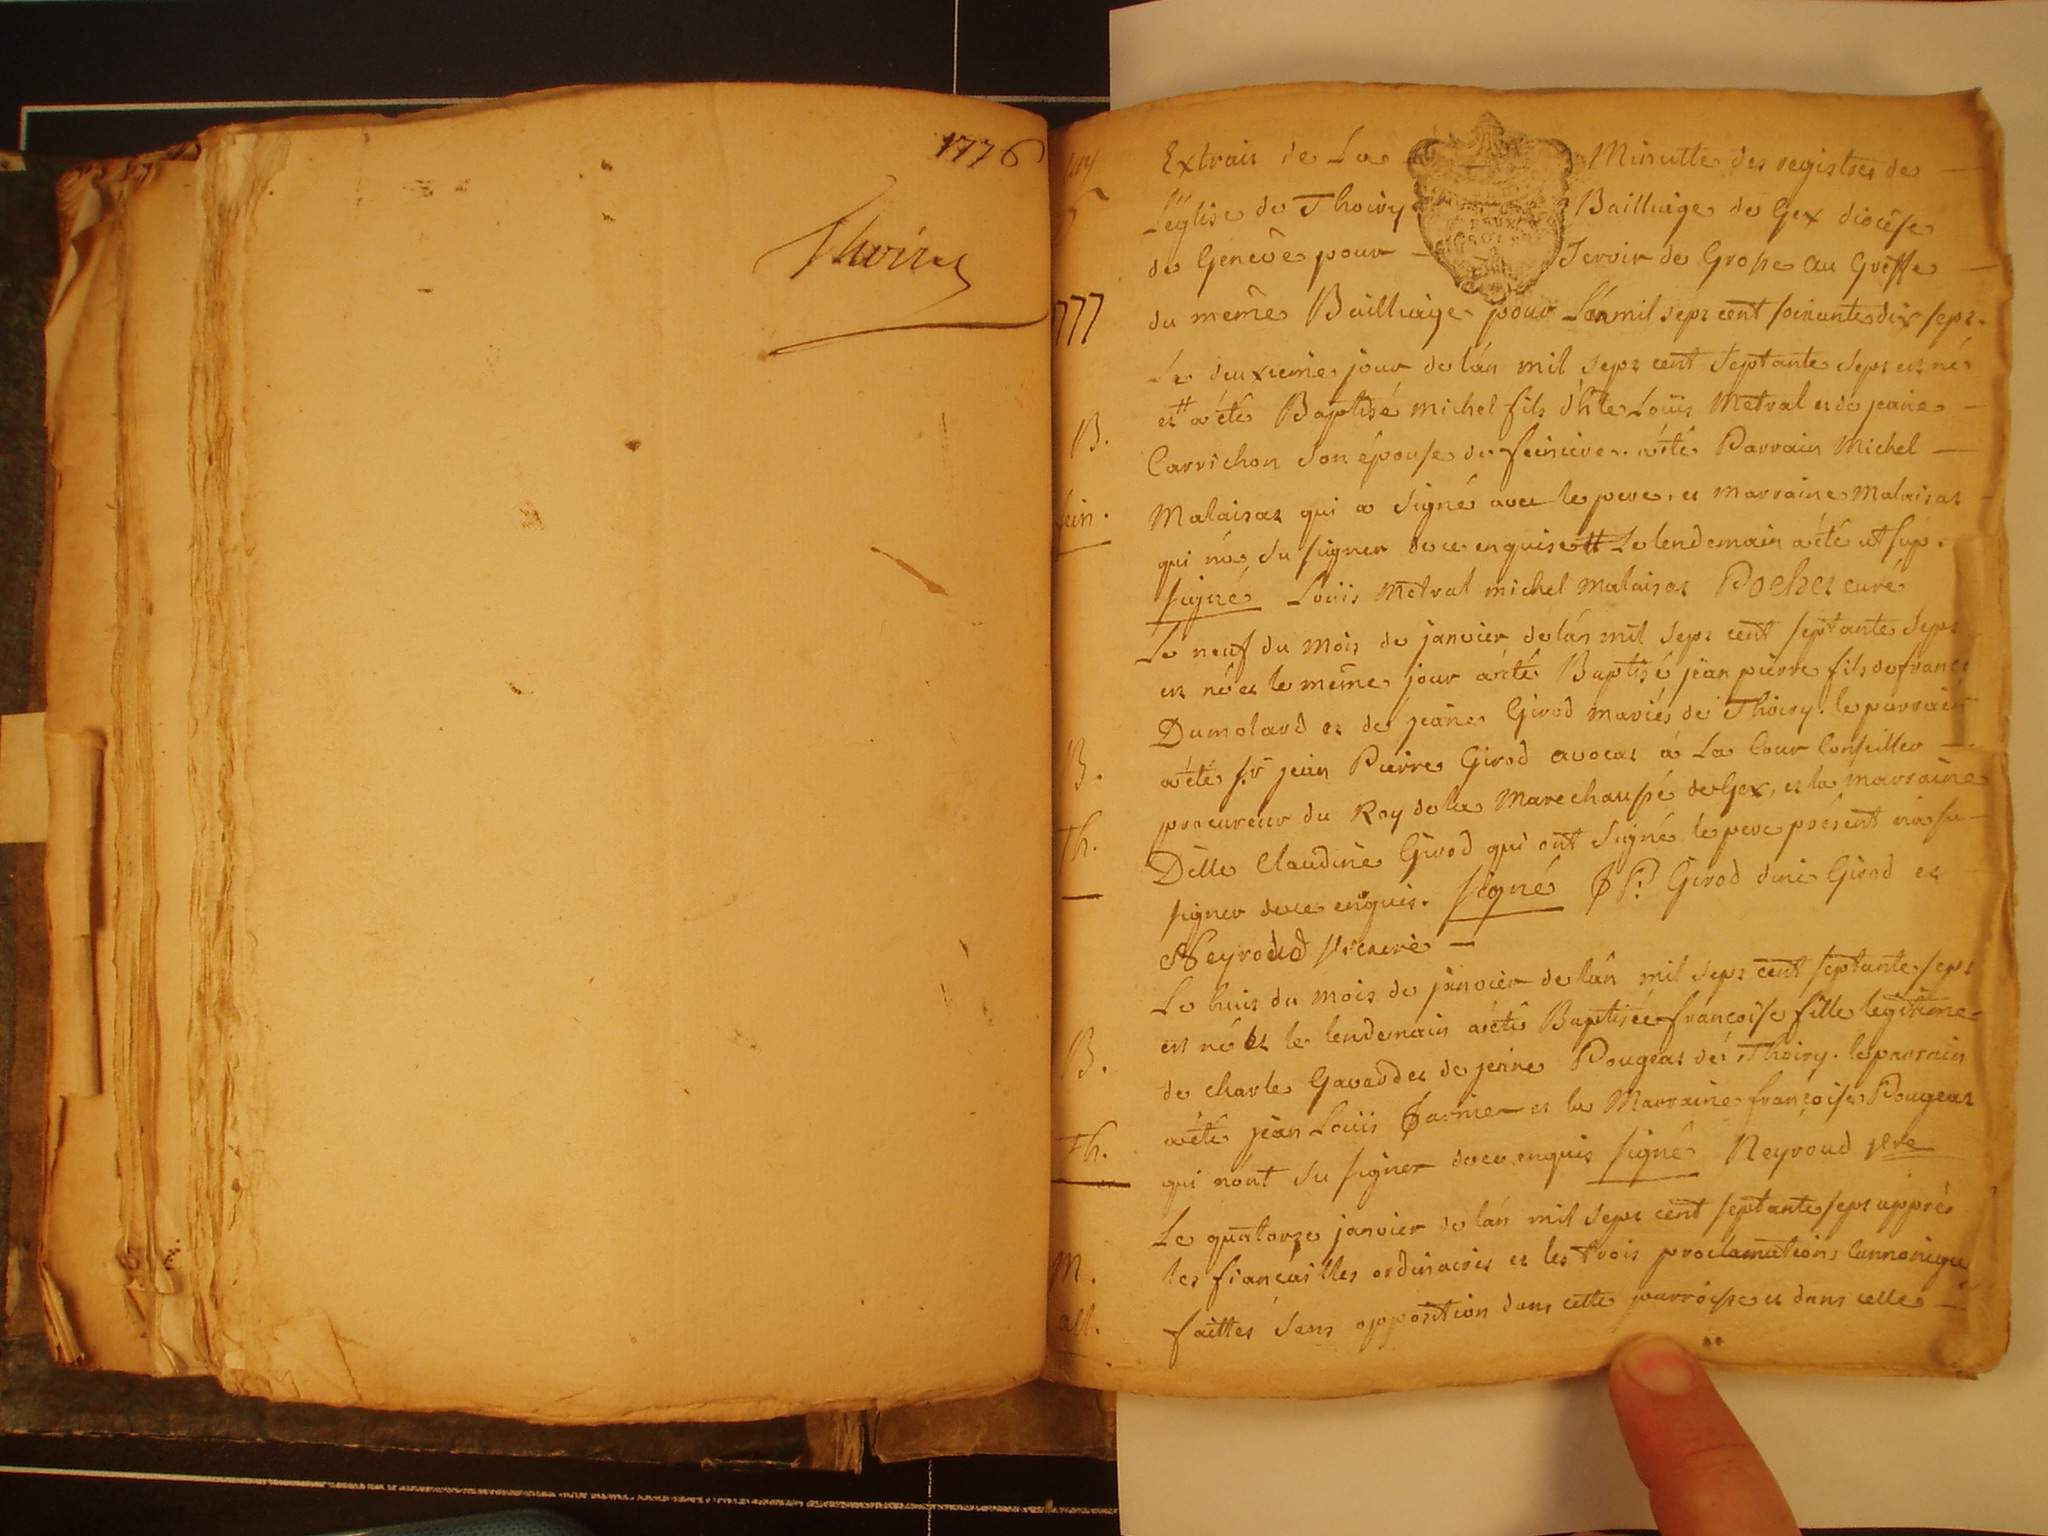 1776
Thoiry
Extrait de La Minutte des registres de
L'église de Thoiry Bailliage de Gex diocése
de Genêve pour Servir de Grosse au Greffe
1777
du même Bailliage pour L'an mil sept cent soixante dix sept.
Le deuxieme jour de lán mil sept cent septante sept est né
et a été Baptisé michel fils d'hle Loüis Metral et de jeane
B.
Carrichon son épouse de feiniere. a été Parrain Michel
fein.
Malaisat qui a signé avec le pere, et marraine Malaisat
qui n'a su signer de ce enquise # Le lendemain a été ut sup.
signé Loüis Metral michel malaisat Pochet curé
Le neuf du mois de janvier de lán mil sept cent septante sept
est né et le même jour a été Baptisé jean pierre fils de france
Dumolard et de jeane Girod mariés de Thoiry. le parrain
B.
a été sr. jean Pierre Girod avocat á La Cour Conseiller
procureur du Roy de la Marechaussé de Gex, et la marraine
Th.
Délle Claudine Girod qui ont signé le pere présent n'a su
signer de ce enquis. signé J P. Girod dine Girod et
Neyroud vicaire
Le huit du mois de janvier de lán mil sept cent septante sept
est né et le lendemain a été Baptisée françoise fille legitime
B.
de charle Gavard et de jeane Pougeat de Thoiry. le parrain
a été jean Loüis Jarnier et la Marraine françoise Pougeat
Th.
qui n'ont su signer de ce enquis signé Neyroud vre
Le quatorze janvier de lán mil sept cent septante sept apprés
M.
les fiançailles ordinaires et les trois proclamations cannonique
all.
faittes sans opposition dans cette parroisse et dans celle